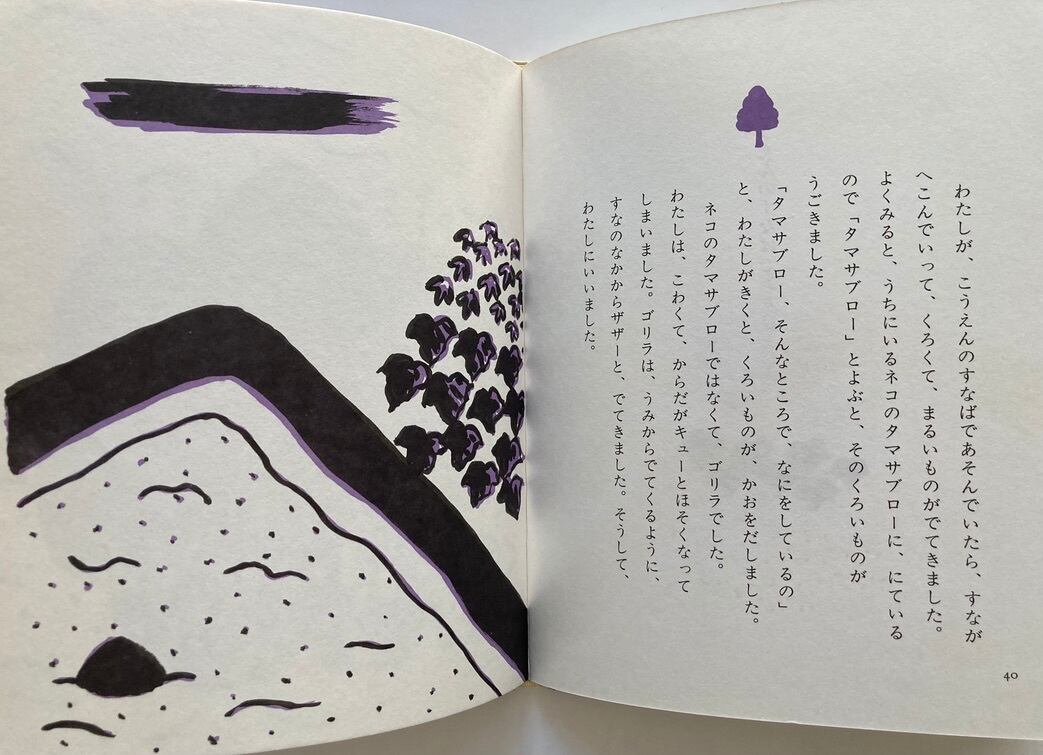 わたしが、こうえんのすなばであそんでいたら、すなが
へこんでいって、くろくて、まるいものがでてきました。
よくみると、うちにいるネコのタマサブローに、にている
ので「タマサブロー」とよぶと、そのくろいものが
うごきました。
「タマサブロー、そんなところで、なにをしているの」
と、わたしがきくと、くろいものが、かおをだしました。
ネコのタマサブローではなくて、ゴリラでした。
わたしは、こわくて、からだがキューとほそくなって
しまいました。ゴリラは、うみからでてくるように、
すなのなかからザザーと、でてきました。そうして、
わたしにいいました。
40